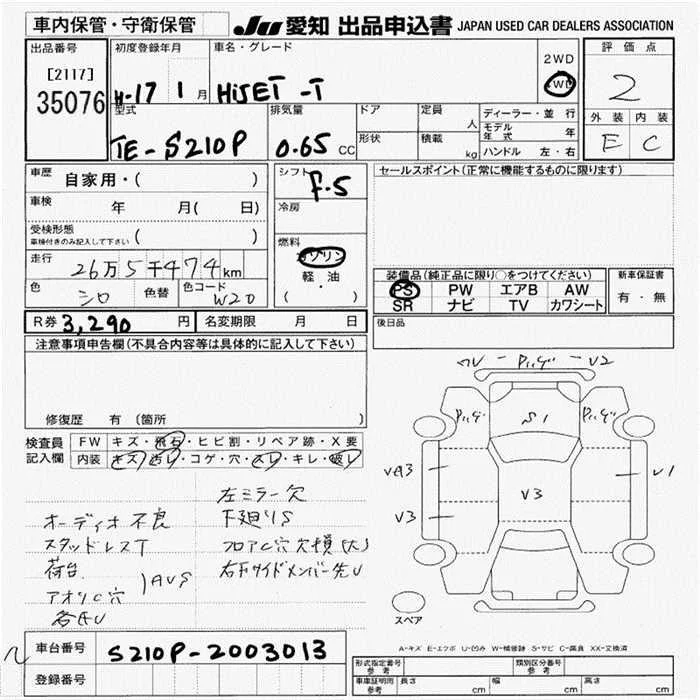 車内保管・守衛保管 JU 愛知 出品申込書 JAPAN USED CAR DEALERS ASSOCIATION
出品番号 初度登録年月 車名・グレード 評価点
[2117] 2WD
35076 H-17 1月 HiJET -T 4WD 2
型式 排気量 ドア 定員 人 ディーラー・並行 外装 内装
モデル年式 年
TE-S210P 0.65 CC 形状 積載 kg ハンドル 左・右 E C
車歴 自家用・( ) シフト F.5 セールスポイント(正常に機能するものに限ります)
車検 年 月( 日) 冷房
受検形態
車検付きのみ記入して下さい ( )
燃料
ガソリン
走行 26万5千474km 軽・油
装備品(純正品に限り○をつけてください) 新車保証書
色 シロ 色替 色コード W20 ( ・ )
PS PW エアB AW 有・無
SR ナビ TV カワシート
R券 3,290 円 名変期限 月 日 後日品
注意事項申告欄(不具合内容等は具体的に記入して下さい)
修復歴 有 (箇所 )
検査員 FW キズ・飛石・ヒビ割・リペア跡・X要
記入欄 内装 キズ・汚レ・コゲ・穴・スレ・キレ・破レ
V2
S1
VA3 V1
V3
V3
左ミラー欠
オーディオ不良 下廻りS
スタッドレスT フロアC穴 欠損(大)
荷台 右下サイドメンバー先U
AUS
アオリC穴
各所U
スペア
A-キズ E-エクボ U-凹み W-補修跡 S-サビ C-腐食 XX-交換済
車台番号 S210P-2003013
登録番号
形式指定番号 参考 類別区分番号 参考
車庫証明用 参考 長さ cm 幅 cm 高さ cm